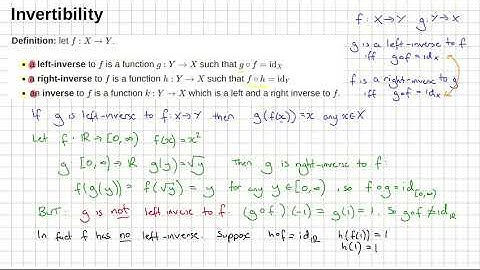 Invertibility
Definition: let f : X → Y.
• a left-inverse to f is a function g : Y → X such that g ∘ f = id_X
• a right-inverse to f is a function h : Y → X such that f ∘ h = id_Y
• an inverse to f is a function k : Y → X which is a left and a right inverse to f.
f : X → Y g : Y → X
g is a left-inverse to f
iff g∘f = id_X
f is a right-inverse to g
iff g∘f = id_X
If g is left-inverse to f: X→Y then g(f(x)) = x any x∈X
Let f : ℝ → [0, ∞) f(x) = x²
g [0, ∞) → ℝ g(y) = √y Then g is right-inverse to f:
f(g(y)) = f(√y) = y for any y ∈ [0, ∞), so f∘g = id_[0,∞)
BUT: g is not left inverse to f: (g∘f)(-1) = g(1) = 1, so g∘f ≠ id_ℝ
In fact f has no left-inverse. Suppose h∘f = id_ℝ h(f(1)) = 1
h(1) = 1